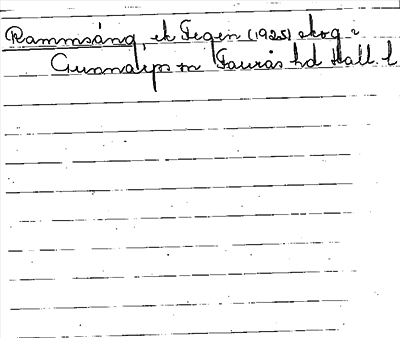 Rammsång, ek Tegen (1925) skog i
Gunnarps sn Faurås hd Hall. l